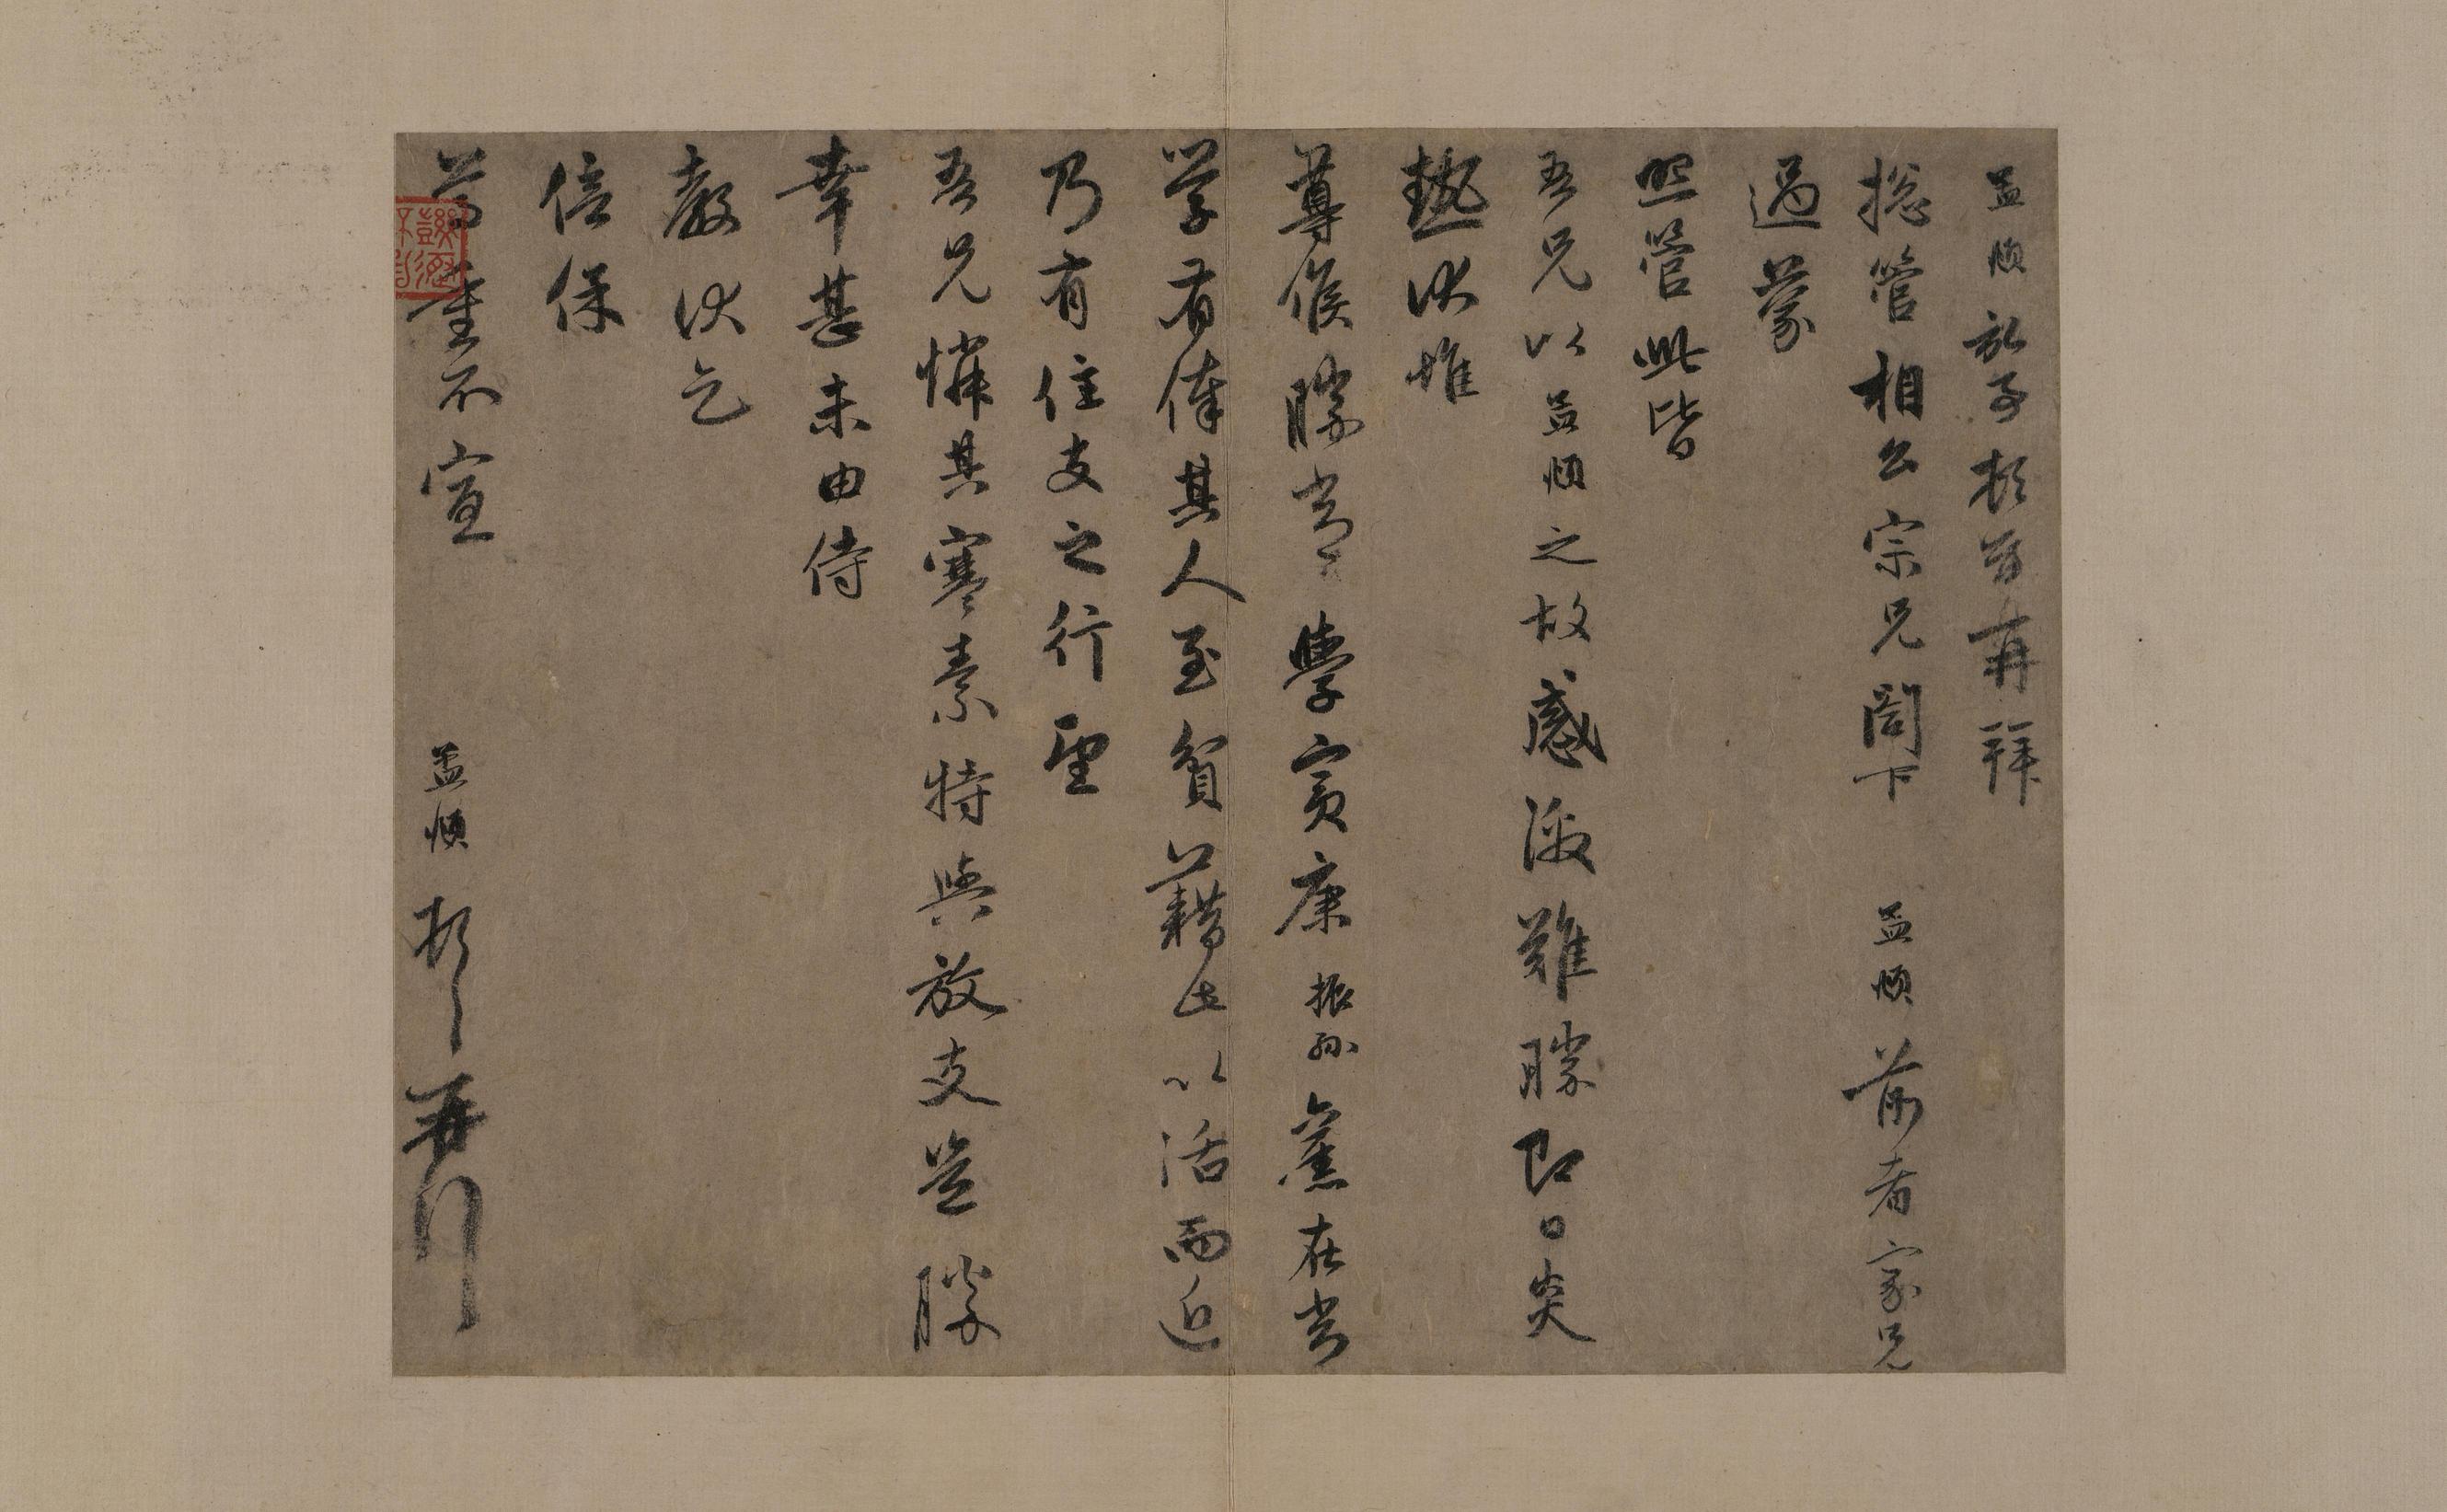 孟頫於子頓首再拜
總管相公宗兄閤下 孟頫前者家兄
過蒙
照管此皆
吾兄以孟頫之故感激難勝即日炎
熱伏惟
尊候勝常 學賓康振孫舊在常
學有俸其人至貧藉此以活而近
乃有住支之行望
吾兄憐其寒素特與放支豈勝
幸甚未由侍
教伏乞
倍保
尊重不宣 孟頫頓首再拜